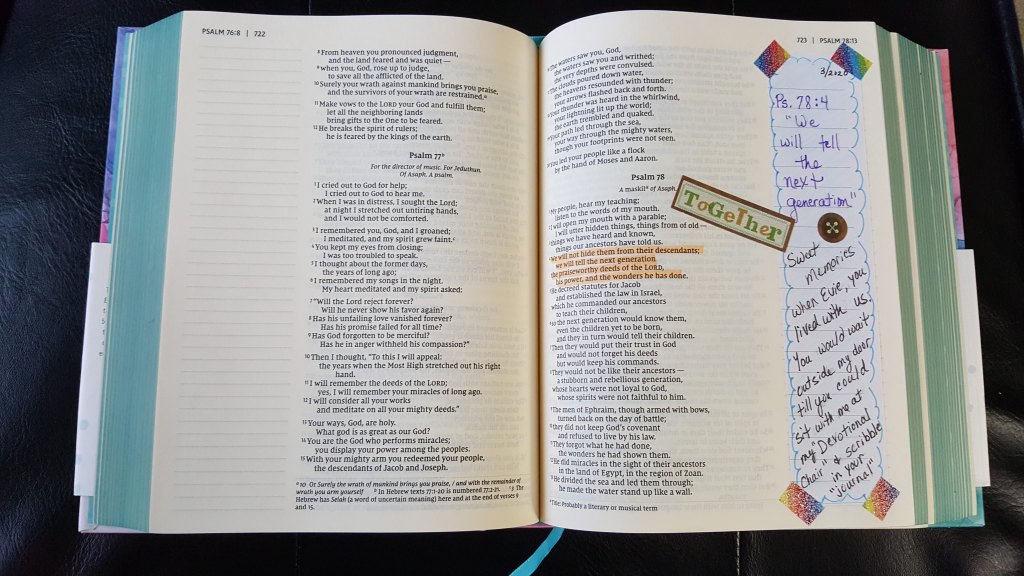 PSALM 76:8 | 722
8 From heaven you pronounced judgment,
and the land feared and was quiet—
9 when you, God, rose up to judge,
to save all the afflicted of the land.
10 Surely your wrath against mankind brings you praise,
and the survivors of your wrath are restrained.a
11 Make vows to the LORD your God and fulfill them;
let all the neighboring lands
bring gifts to the One to be feared.
12 He breaks the spirit of rulers;
he is feared by the kings of the earth.
Psalm 77b
For the director of music. For Jeduthun.
Of Asaph. A psalm.
1 I cried out to God for help;
I cried out to God to hear me.
2 When I was in distress, I sought the Lord;
at night I stretched out untiring hands,
and I would not be comforted.
3 I remembered you, God, and I groaned;
I meditated, and my spirit grew faint.c
4 You kept my eyes from closing;
I was too troubled to speak.
5 I thought about the former days,
the years of long ago;
6 I remembered my songs in the night.
My heart meditated and my spirit asked:
7 "Will the Lord reject forever?
Will he never show his favor again?
8 Has his unfailing love vanished forever?
Has his promise failed for all time?
9 Has God forgotten to be merciful?
Has he in anger withheld his compassion?"
10 Then I thought, "To this I will appeal:
the years when the Most High stretched out his right
hand.
11 I will remember the deeds of the LORD;
yes, I will remember your miracles of long ago.
12 I will consider all your works
and meditate on all your mighty deeds."
13 Your ways, God, are holy.
What god is as great as our God?
14 You are the God who performs miracles;
you display your power among the peoples.
15 With your mighty arm you redeemed your people,
the descendants of Jacob and Joseph.
a 10 Or Surely the wrath of mankind brings you praise, / and with the remainder of
wrath you arm yourself b In Hebrew texts 77:1-20 is numbered 77:2-21. c 3 The
Hebrew has Selah (a word of uncertain meaning) here and at the end of verses 9
and 15.
723 | PSALM 78:13
16 The waters saw you, God,
the waters saw you and writhed;
the very depths were convulsed.
17 The clouds poured down water,
the heavens resounded with thunder;
your arrows flashed back and forth.
18 Your thunder was heard in the whirlwind,
your lightning lit up the world;
the earth trembled and quaked.
19 Your path led through the sea,
your way through the mighty waters,
though your footprints were not seen.
20 You led your people like a flock
by the hand of Moses and Aaron.
Psalm 78
A maskil a of Asaph.
1 My people, hear my teaching;
listen to the words of my mouth.
2 I will open my mouth with a parable;
I will utter hidden things, things from of old—
3 things we have heard and known,
things our ancestors have told us.
4 We will not hide them from their descendants;
we will tell the next generation
the praiseworthy deeds of the LORD,
his power, and the wonders he has done.
5 He decreed statutes for Jacob
and established the law in Israel,
which he commanded our ancestors
to teach their children,
6 so the next generation would know them,
even the children yet to be born,
and they in turn would tell their children.
7 Then they would put their trust in God
and would not forget his deeds
but would keep his commands.
8 They would not be like their ancestors—
a stubborn and rebellious generation,
whose hearts were not loyal to God,
whose spirits were not faithful to him.
9 The men of Ephraim, though armed with bows,
turned back on the day of battle;
10 they did not keep God's covenant
and refused to live by his law.
11 They forgot what he had done,
the wonders he had shown them.
12 He did miracles in the sight of their ancestors
in the land of Egypt, in the region of Zoan.
13 He divided the sea and led them through;
he made the water stand up like a wall.
a Title: Probably a literary or musical term
ToGeTher
3/2020
Ps. 78:4
"We
will tell
the
next
generation"
Sweet
memories
when Evie, you
lived with us.
You would wait
outside my door
till you could
sit with me at
my "Devotional
Chair" & scribble
in your
"journal"